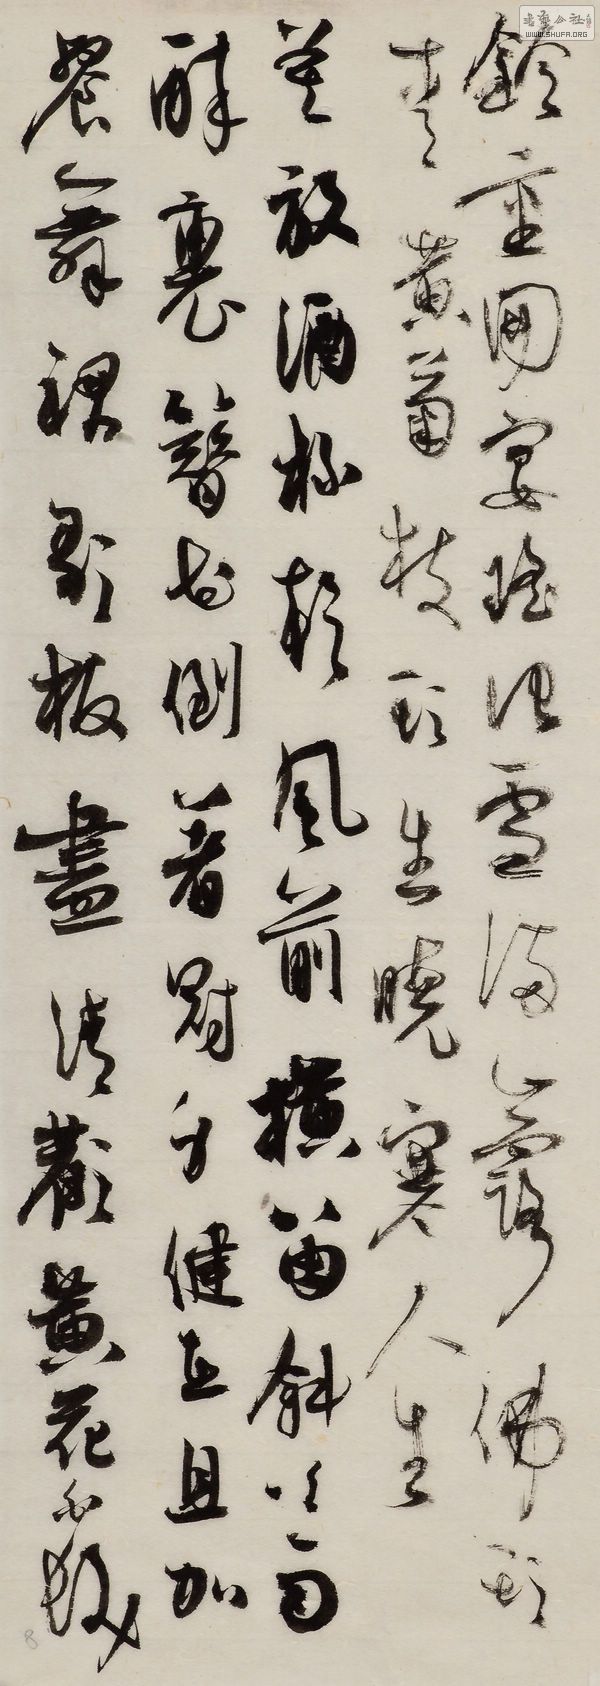 重開宴瑤池雪滿山露佛頭
青黃菊枝頭生曉寒人生
莫放酒杯乾風前橫笛斜吹雨
醉裏簪花倒著冠身健在且加
餐舞裙歌板盡清歡黃花白髮
書藝公社
WWW.SHUFA.ORG
8